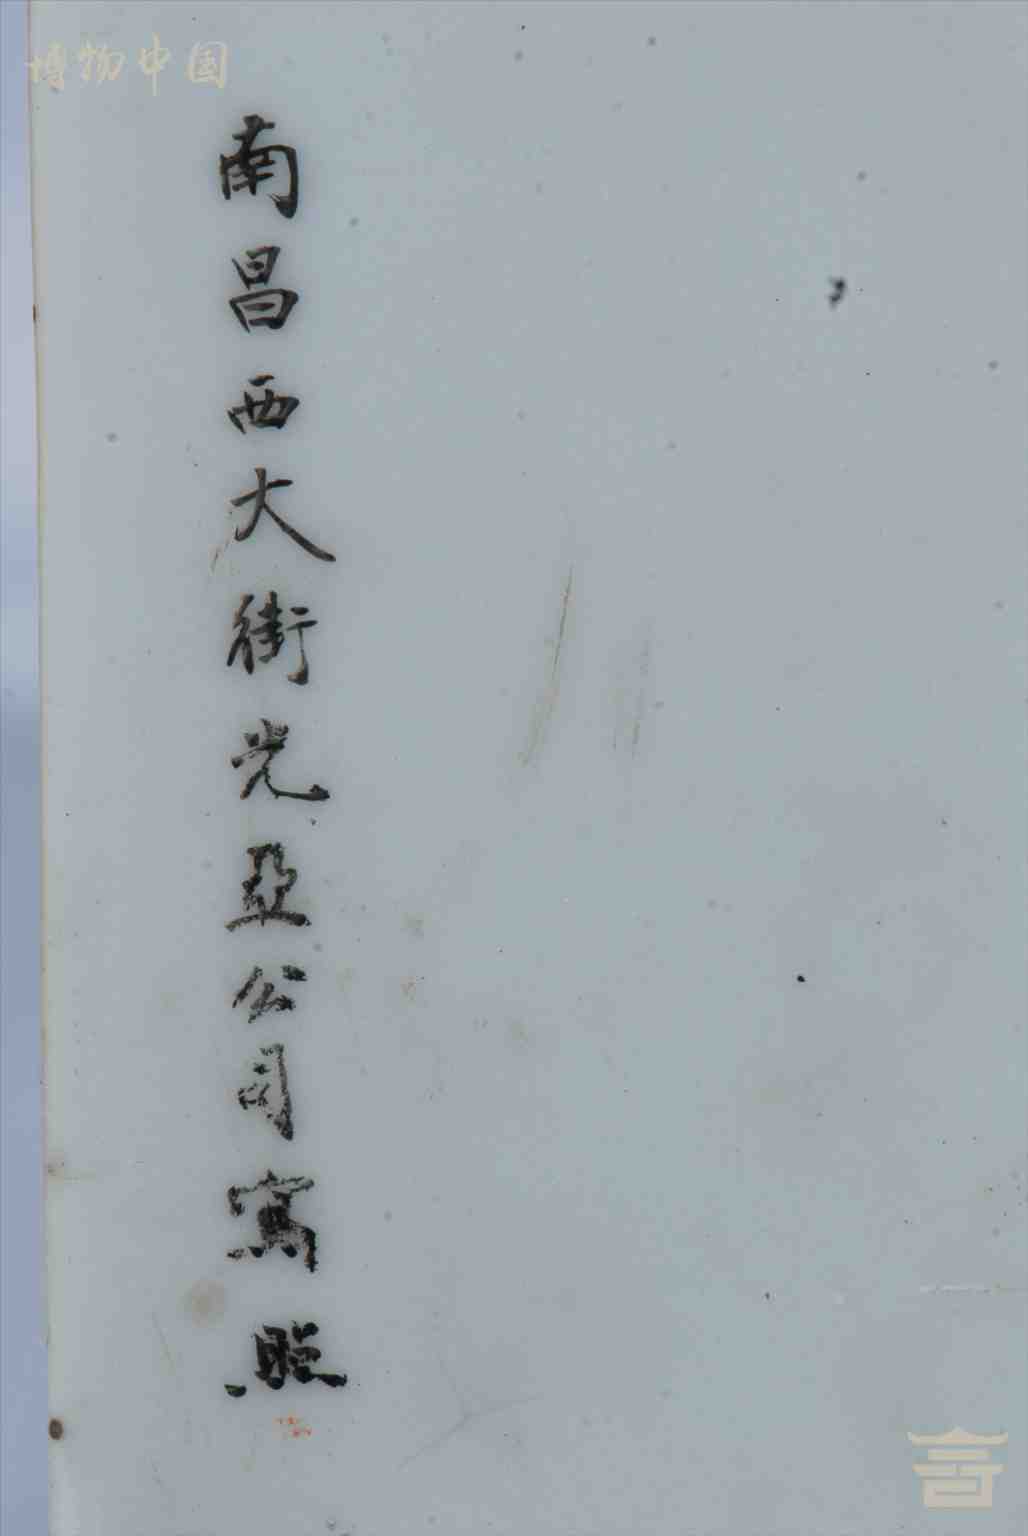 博物中国
南昌西大街光亞公司寫照